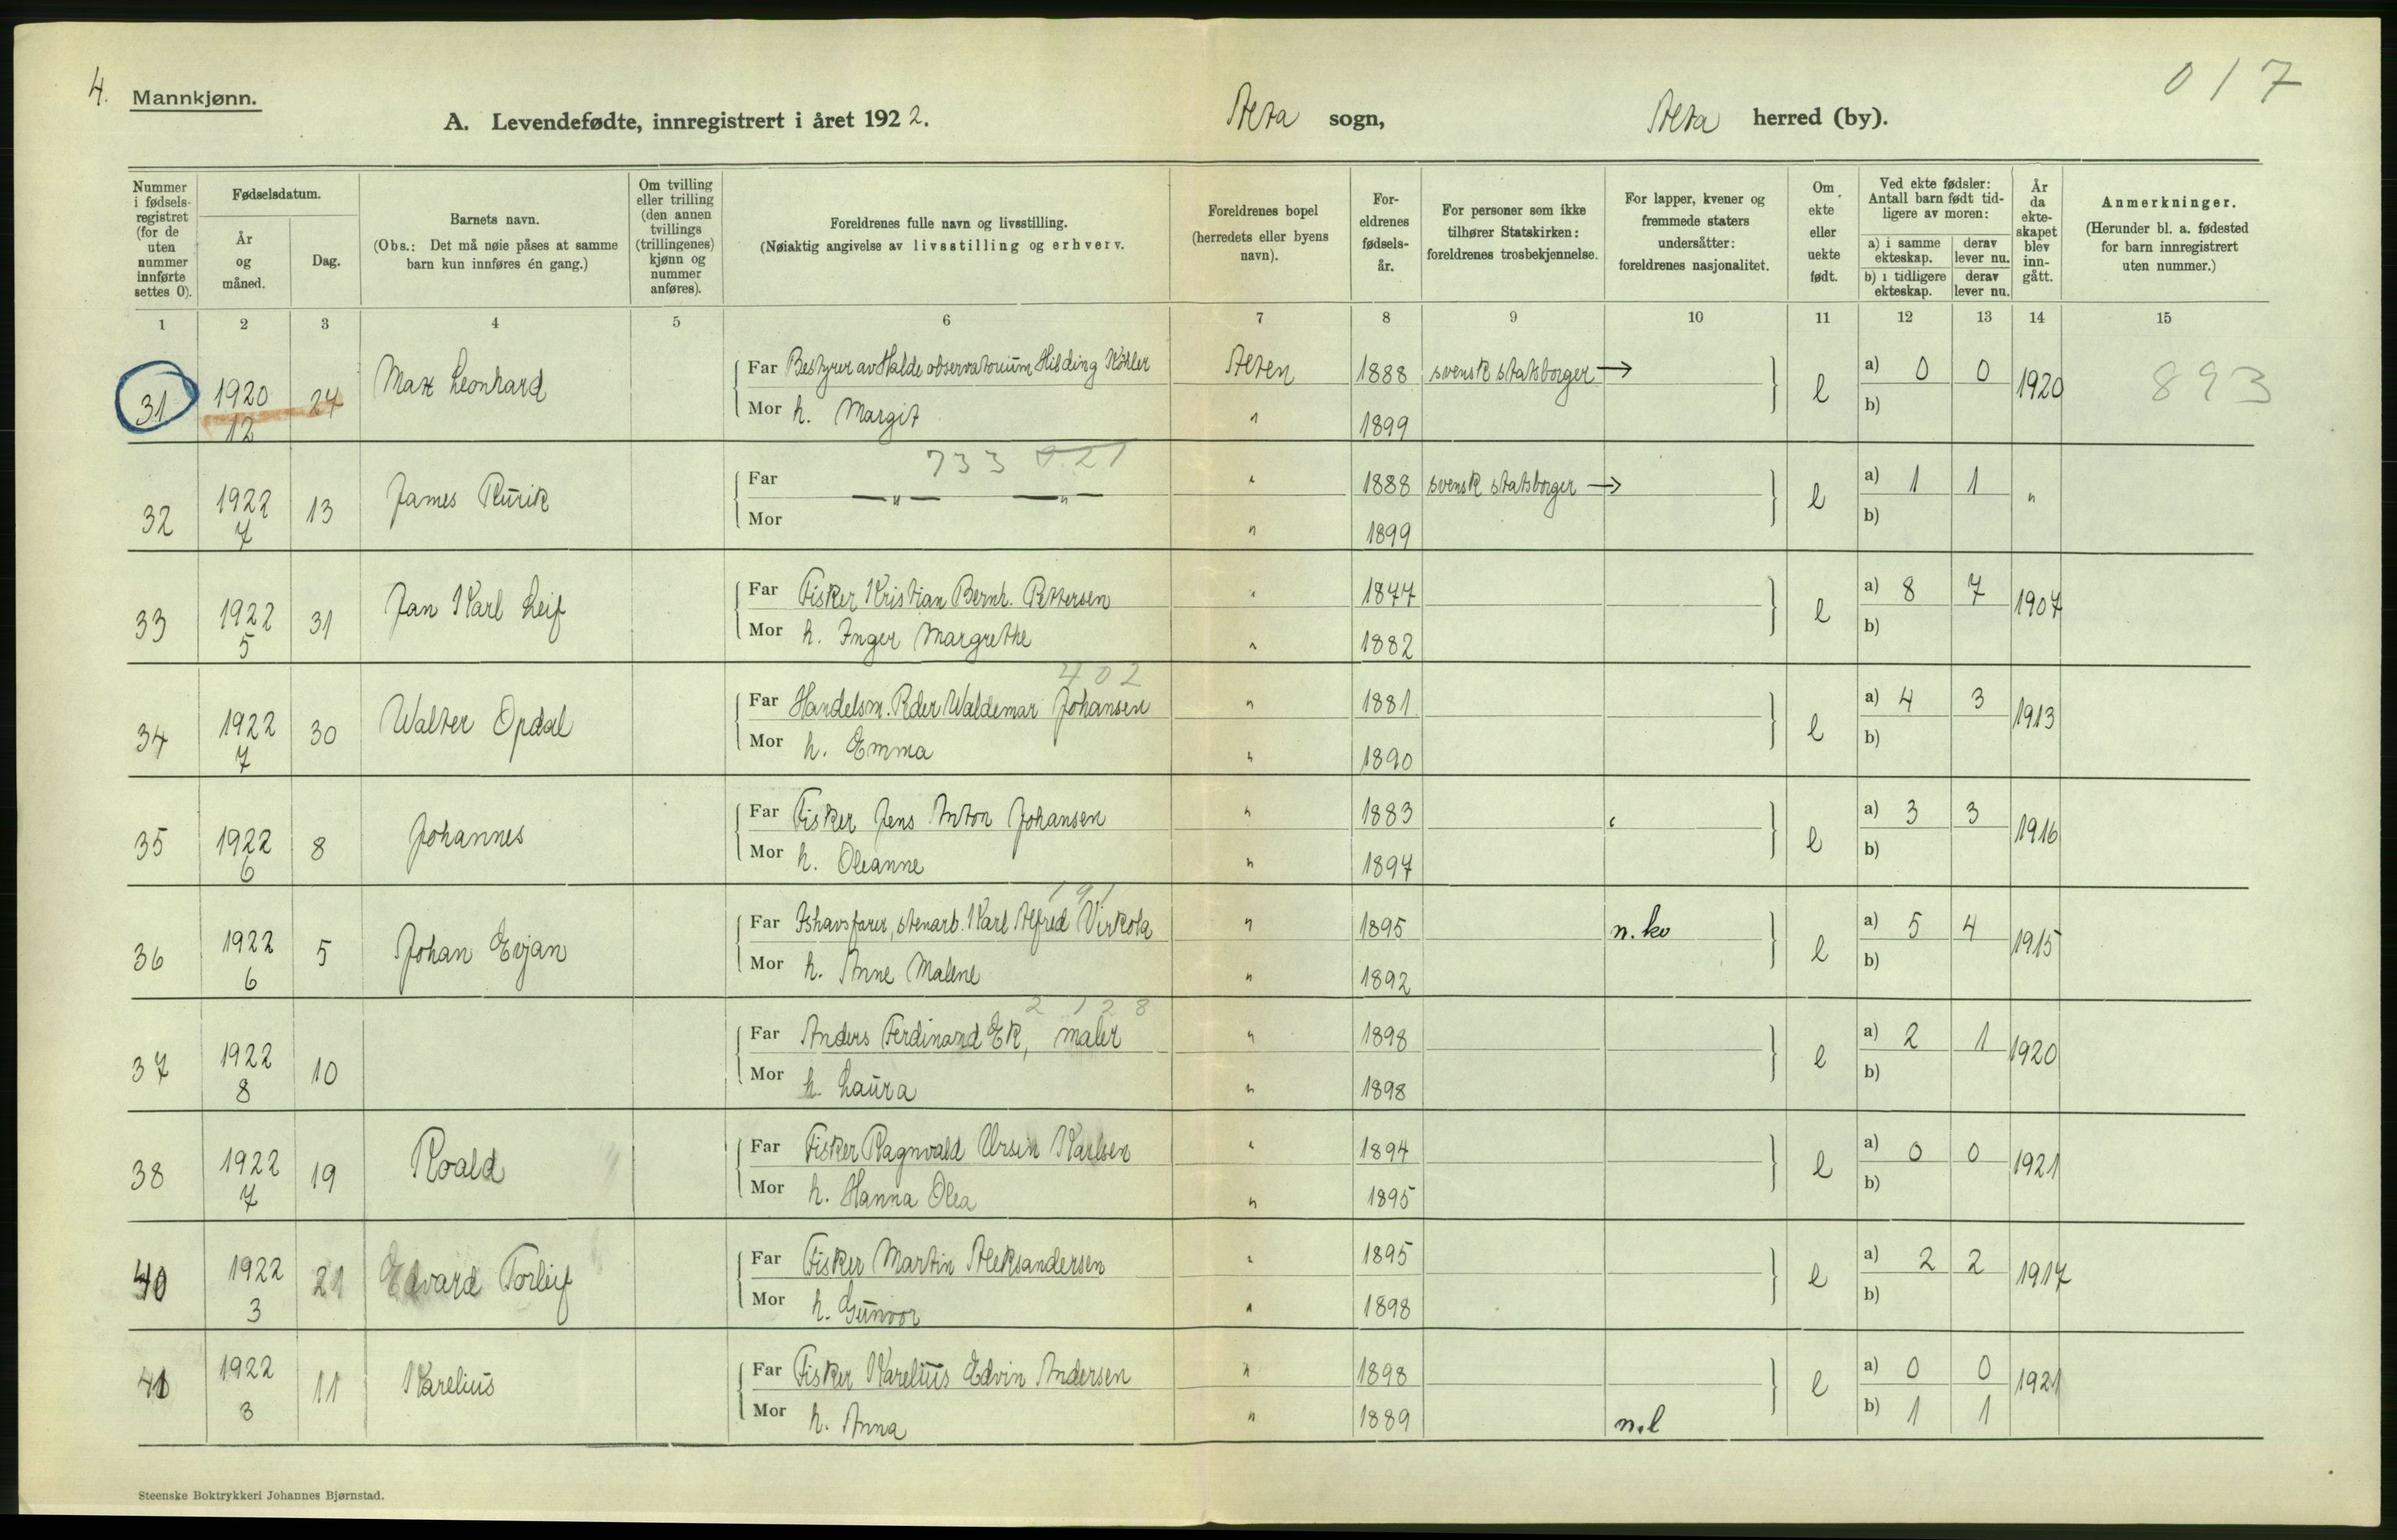 4.
Mannkjønn.
017
A. Levendefødte, innregistrert i året 1922.
Alta sogn,
Alta herred (by).
Nummer i fødselsregistret (for de uten nummer innførte settes 0).
Fødselsdatum.
År og måned.
Dag.
Barnets navn.
(Obs.: Det må nøie påses at samme barn kun innføres én gang.)
Om tvilling eller trilling (den annen tvillings (trillingenes) kjønn og nummer anføres).
Foreldrenes fulle navn og livsstilling.
(Nøiaktig angivelse av livsstilling og erhverv.
Foreldrenes bopel (herredets eller byens navn).
Foreldrenes fødselsår.
For personer som ikke tilhører Statskirken: foreldrenes trosbekjennelse.
For lapper, kvener og fremmede staters undersåtter: foreldrenes nasjonalitet.
Om ekte eller uekte født.
Ved ekte fødsler: Antall barn født tidligere av moren:
a) i samme ekteskap. derav lever nu.
b) i tidligere ekteskap. derav lever nu.
År da ekteskapet blev inngått.
Anmerkninger.
(Herunder bl. a. fødested for barn innregistrert uten nummer.)
1 2 3 4 5 6 7 8 9 10 11 12 13 14 15
31 1920 12 24 Max Leonhard Far Bestyrer av Halde observatorium Hilding Köhler Alten 1888 svensk statsborger → e a) 0 0 1920 893
Mor h. Margit " 1899 b)
733 8.21
32 1922 7 13 James Rurik Far —"— —"— " 1888 svensk statsborger → e a) 1 1 "
Mor " 1899 b)
33 1922 5 31 Jan Karl Leif Far Fisker Kristian Bernh. Pettersen " 1877 e a) 8 7 1907
Mor h. Inger Margrethe " 1882 b)
402
34 1922 7 30 Walter Opdal Far Handelsm. Peder Waldemar Johansen " 1881 e a) 4 3 1913
Mor h. Emma " 1890 b)
35 1922 6 8 Johannes Far Fisker Jens Anton Johansen " 1883 e a) 3 3 1916
Mor h. Oleanne " 1897 b)
191
36 1922 6 5 Johan Evjan Far Ishavsfarer, stenarb. Karl Alfred Virkola " 1895 n. kv e a) 5 4 1915
Mor h. Anne Malene " 1892 b)
2128
37 1922 8 10 Far Anders Ferdinand Ek, maler " 1898 e a) 2 1 1920
Mor h. Laura " 1898 b)
38 1922 7 19 Roald Far Fisker Ragnvald Ursin Karlsen " 1894 e a) 0 0 1921
Mor h. Hanna Olea " 1895 b)
40 1922 3 21 Edvard Torleif Far Fisker Martin Aleksandersen " 1895 e a) 2 2 1917
Mor h. Gunvor " 1898 b)
41 1922 3 11 Karelius Far Fisker Karelius Edvin Andersen " 1898 e a) 0 0 1921
Mor h. Anna " 1889 n.l b) 1 1
Steenske Boktrykkeri Johannes Bjørnstad.